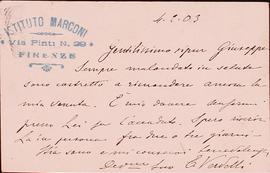 ISTITUTO MARCONI
Via Pinti N. 29
FIRENZE
4-2-03
Gentilissimo signor Giuseppe
Sempre malandato in salute
sono costretto a rimandare ancora la
mia venuta. È mio dovere
presso Lei per l'accaduto. Spero
in persona fra due o tre giorni
Mi
Dev.mo suo E.